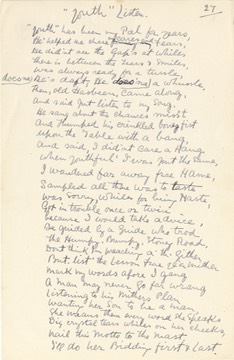 27
"Youth" Listen.
"Youth" has been my Pal for years,
He helped me share fears,
He did'nt see the Gap's at whiles
there is between the Tears & Smiles,
Was always ready for a tussle,
as a whistle,
Then, old Hasbeen, Came along,
and said Just listen to my Song.
He sang about the chances miss't
And thumped his wrinkled bony fist
upon the Table with a bang,
and said, I did'nt Care a Hang
when youthful! I was just the same,
I wandered far away free Name,
Sampled all this was to taste
Was sorry, Whiles for being Haste,
Got in trouble once or twice
because I would take advice,
Be guided by a Guide who trod
the Humpy, Bumpy, Stoney Road,
Dont think I'm preaching a' the Gither
But, list' the Lesson free a Mither
Mark my words afore I gang
A man may never go far wrang
Listening to his Mithers Plan
Wanting her Son to be a man.
She means them every word she speaks
Big crystal tears while on her cheeks,
Nail this Motto to the mast
I'll do her Bidding first & Last.